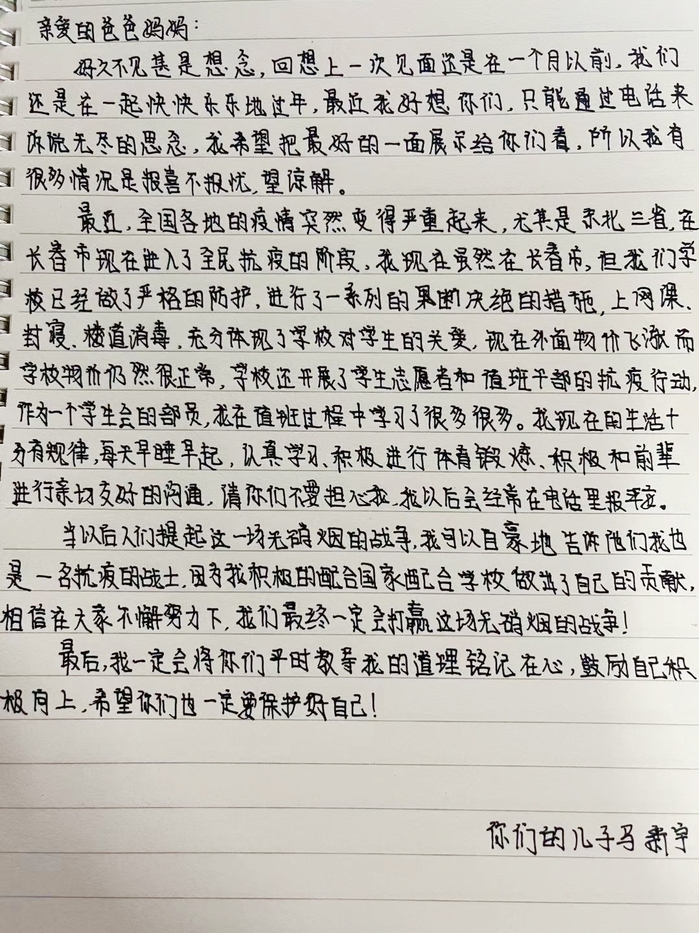 亲爱的爸爸妈妈：
好久不见甚是想念，回想上一次见面还是在一个月以前，我们
还是在一起快快乐乐地过年，最近我好想你们，只能通过电话来
诉说无尽的思念，我希望把最好的一面展示给你们看，所以我有
很多情况是报喜不报忧，望谅解。
最近，全国各地的疫情突然变得严重起来，尤其是东北三省，在
长春市现在进入了全民抗疫的阶段，我现在虽然在长春市，但我们学
校已经做了严格的防护，进行了一系列的果断决绝的措施，上网课、
封寝、楼道消毒，充分体现了学校对学生的关爱，现在外面物价飞涨而
学校物价仍然很正常，学校还开展了学生志愿者和值班干部的抗疫行动，
作为一个学生会的部员，我在值班过程中学习了很多很多。我现在的生活十
分有规律，每天早睡早起，认真学习、积极进行体育锻炼、积极和前辈
进行亲切友好的沟通，请你们不要担心我，我以后会经常在电话里报平安。
当以后人们提起这一场无硝烟的战争，我可以自豪地告诉他们我也
是一名抗疫的战士，因为我积极的配合国家配合学校做出了自己的贡献，
相信在大家不懈努力下，我们最终一定会打赢这场无硝烟的战争！
最后，我一定会将你们平时教导我的道理铭记在心，鼓励自己积
极向上，希望你们也一定要保护好自己！
你们的儿子马新宇